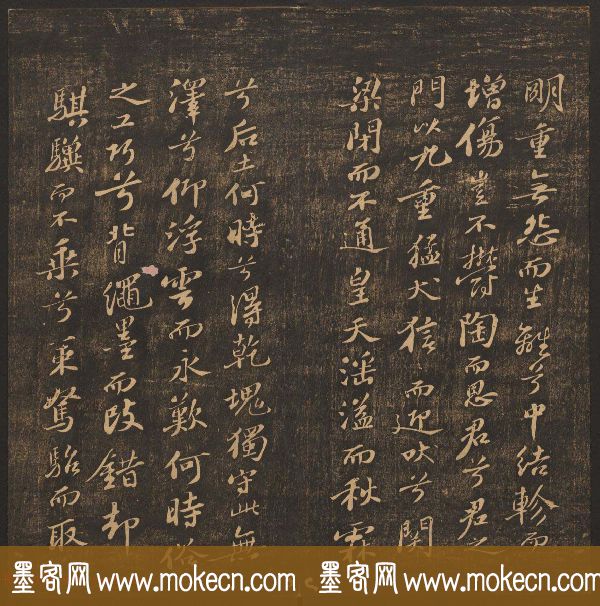 明重無怨而生離兮中結軫而
增傷豈不鬱陶而思君兮君之
門以九重猛犬狺〻而迎吠兮関
梁閉而不通皇天淫溢而秋霖
兮后土何時兮得乾塊獨守此無
澤兮仰浮雲而永歎何時俗
之工巧兮背繩墨而改錯却
騏驥而不乘兮策駑駘而取
墨客网 www.mokecn.com 墨客网 www.mokecn.com